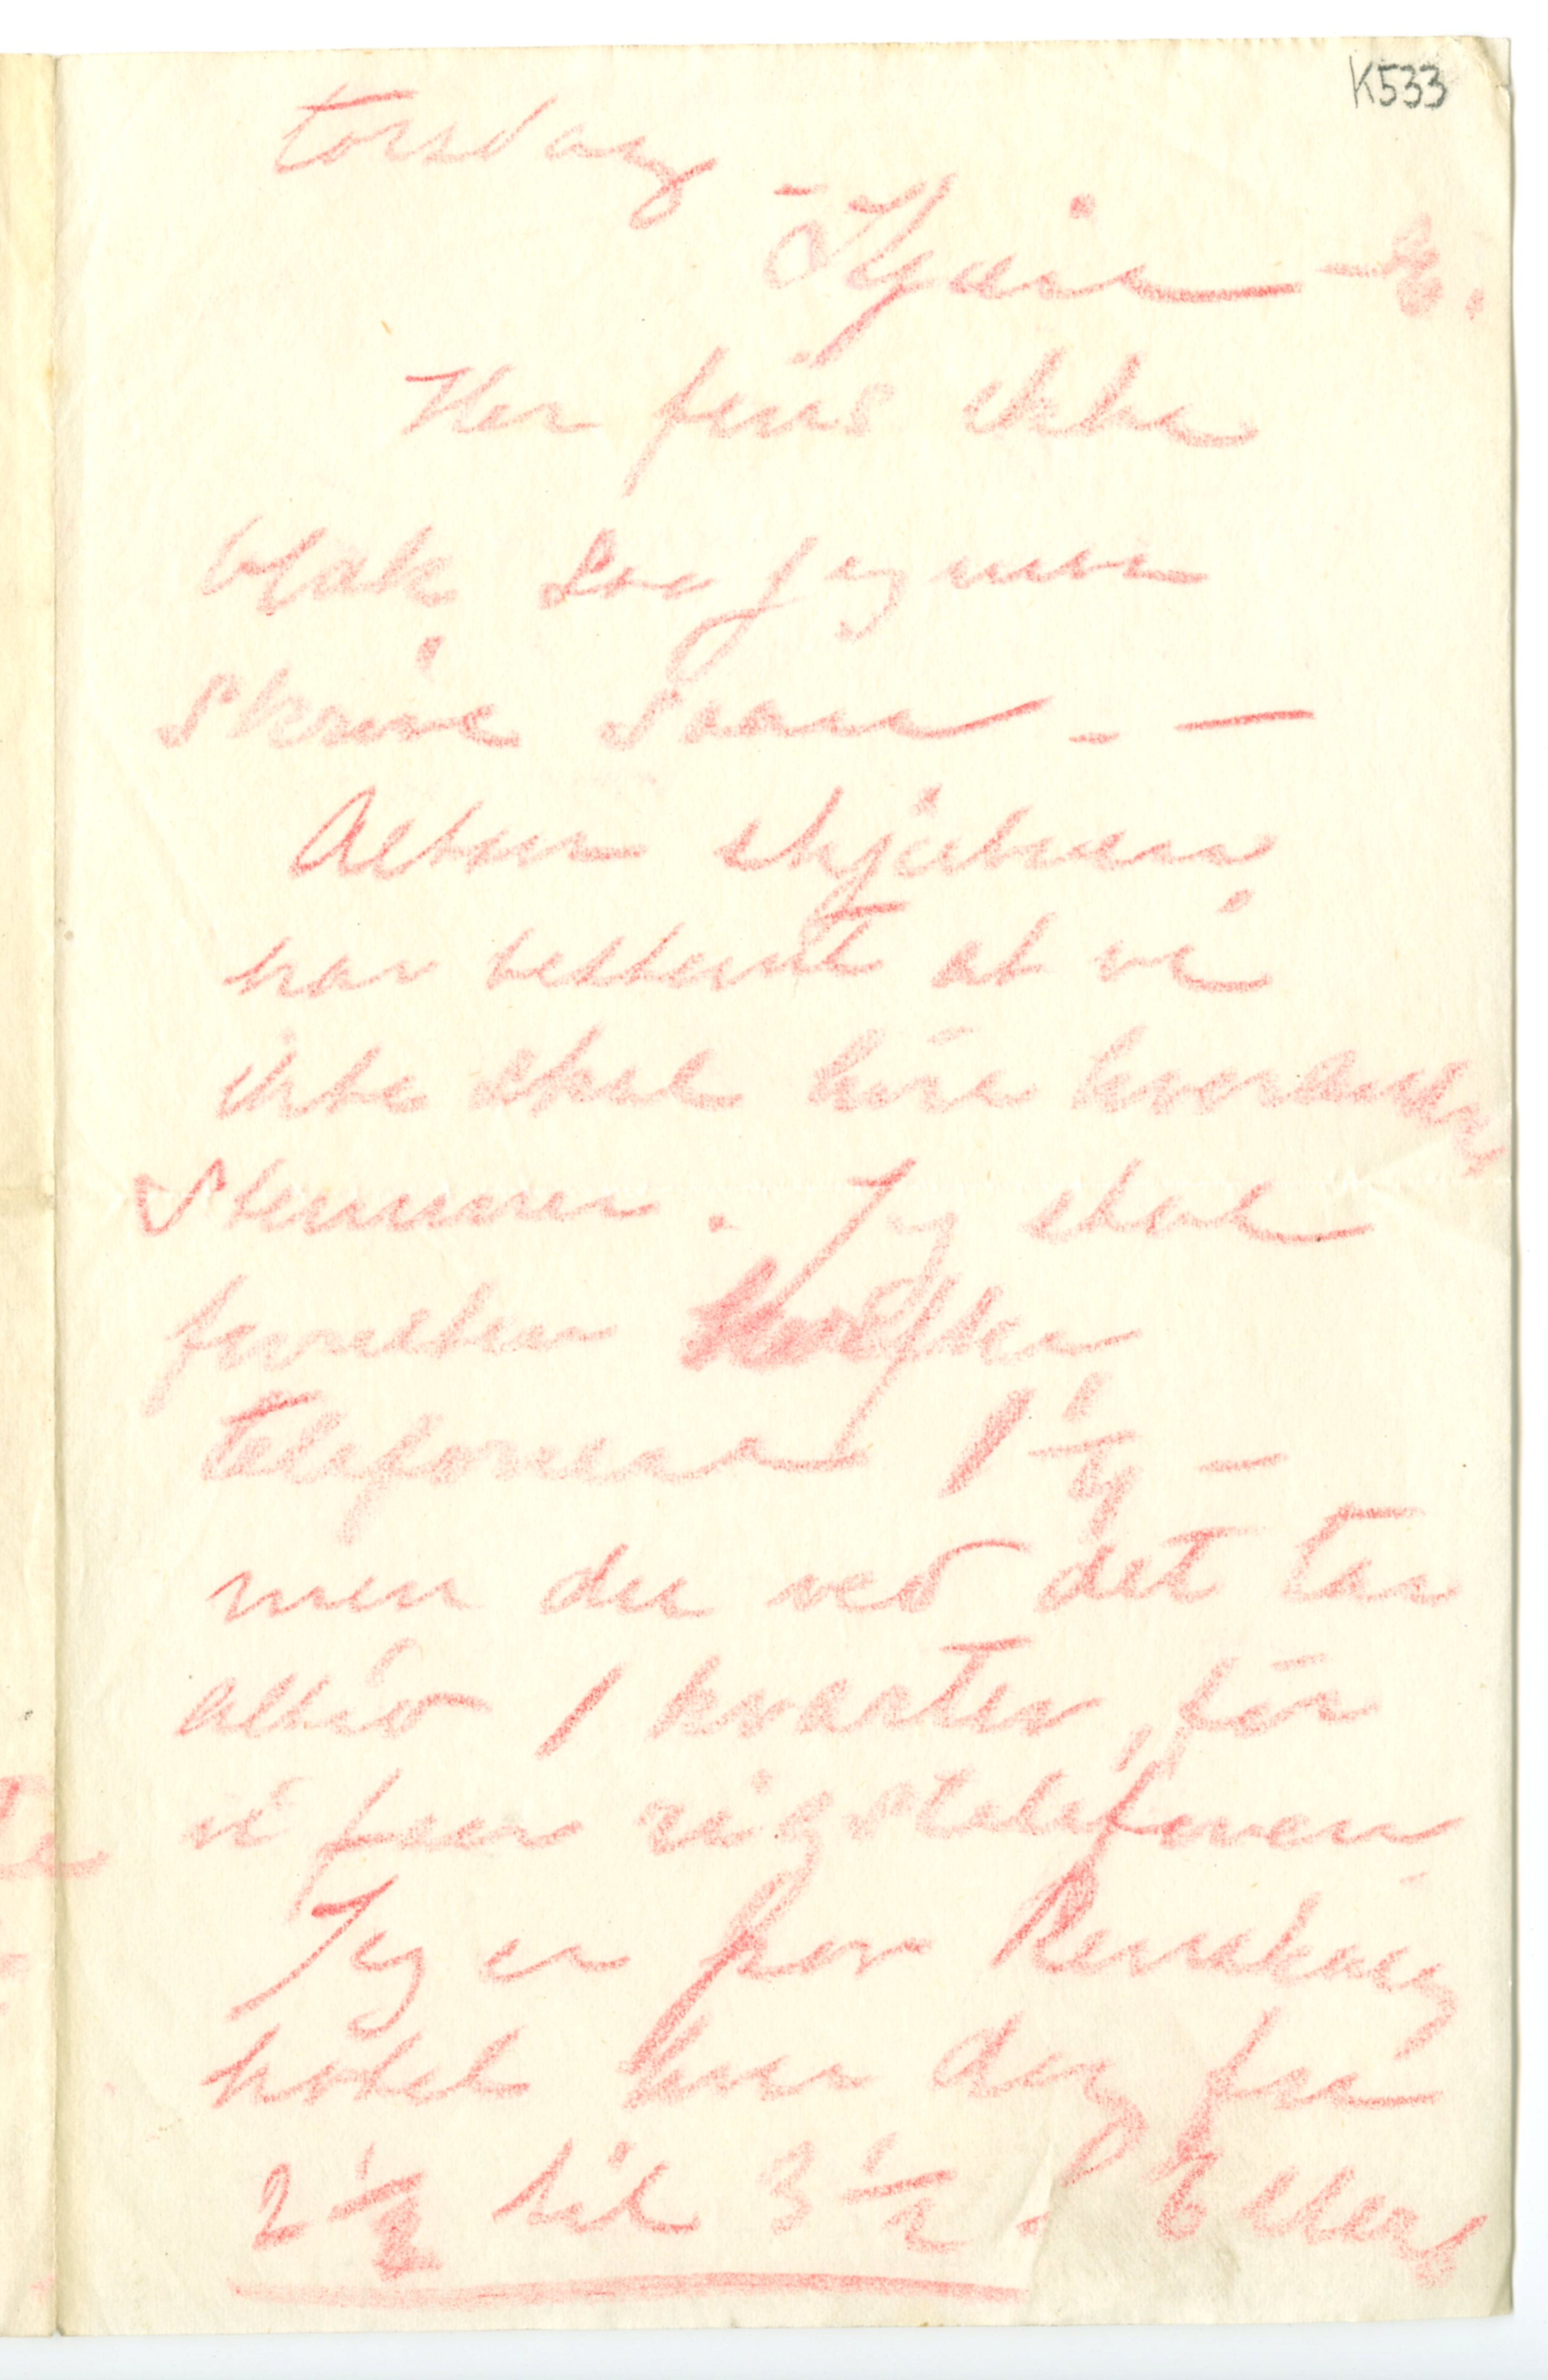 K533
torsdag
Kjære – E.
Her fins ikke
blæk saa jeg maa
skrive saan – –
Altsaa skjæbnen
har bestemt at vi
ikke skal høre hverandres
stemmer. Jeg skal
forsøke
telefonere 1 1/2 –
men du ved det tar
altid 1 kvarter, før
vi faar rigstelefonen
Jeg er paa
hotel hver dag fra
2 1/2 til 3 1/2. Ellers